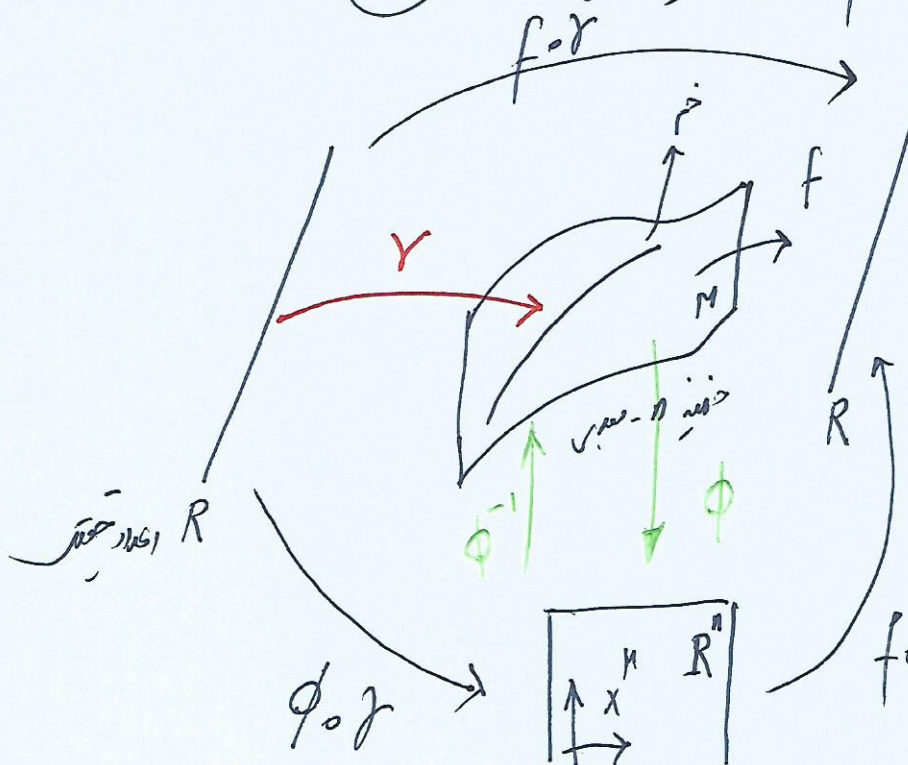 f∘γ
خم
f
γ
M
خمینه n-بعدی
R
اعداد حقیقی R
ϕ⁻¹
ϕ
R^n
x^μ
ϕ∘γ
f∘